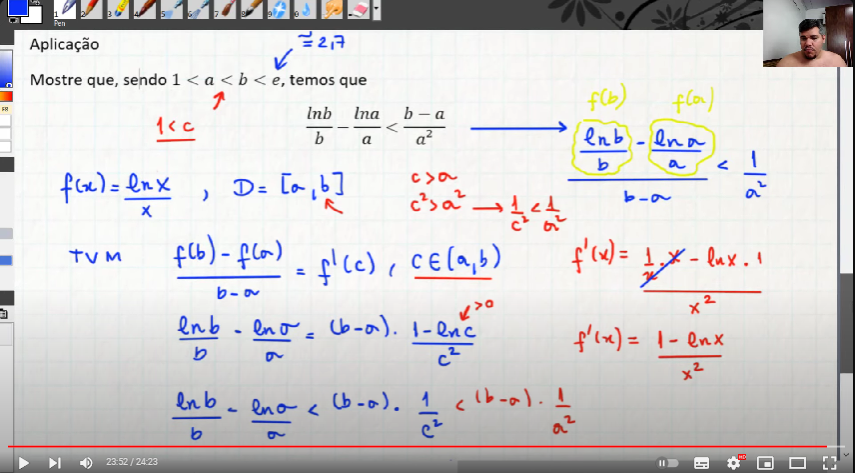 Pen
Aplicação
≅2,7
Mostre que, sendo 1 < a < b < e, temos que
1<c
lnb/b − lna/a < (b − a)/a²
f(b) f(a)
(lnb/b - lna/a)/(b-a) < 1/a²
f(x) = lnx/x , D = [a,b]
c>a
c²>a² → 1/c² < 1/a²
TVM (f(b)-f(a))/(b-a) = f'(c) , c∈(a,b)
f'(x) = (1/x · x - lnx · 1)/x²
>0
lnb/b - lna/a = (b-a) · (1-lnc)/c²
f'(x) = (1-lnx)/x²
lnb/b - lna/a < (b-a) · 1/c² < (b-a) · 1/a²
23:52 / 24:23
HD